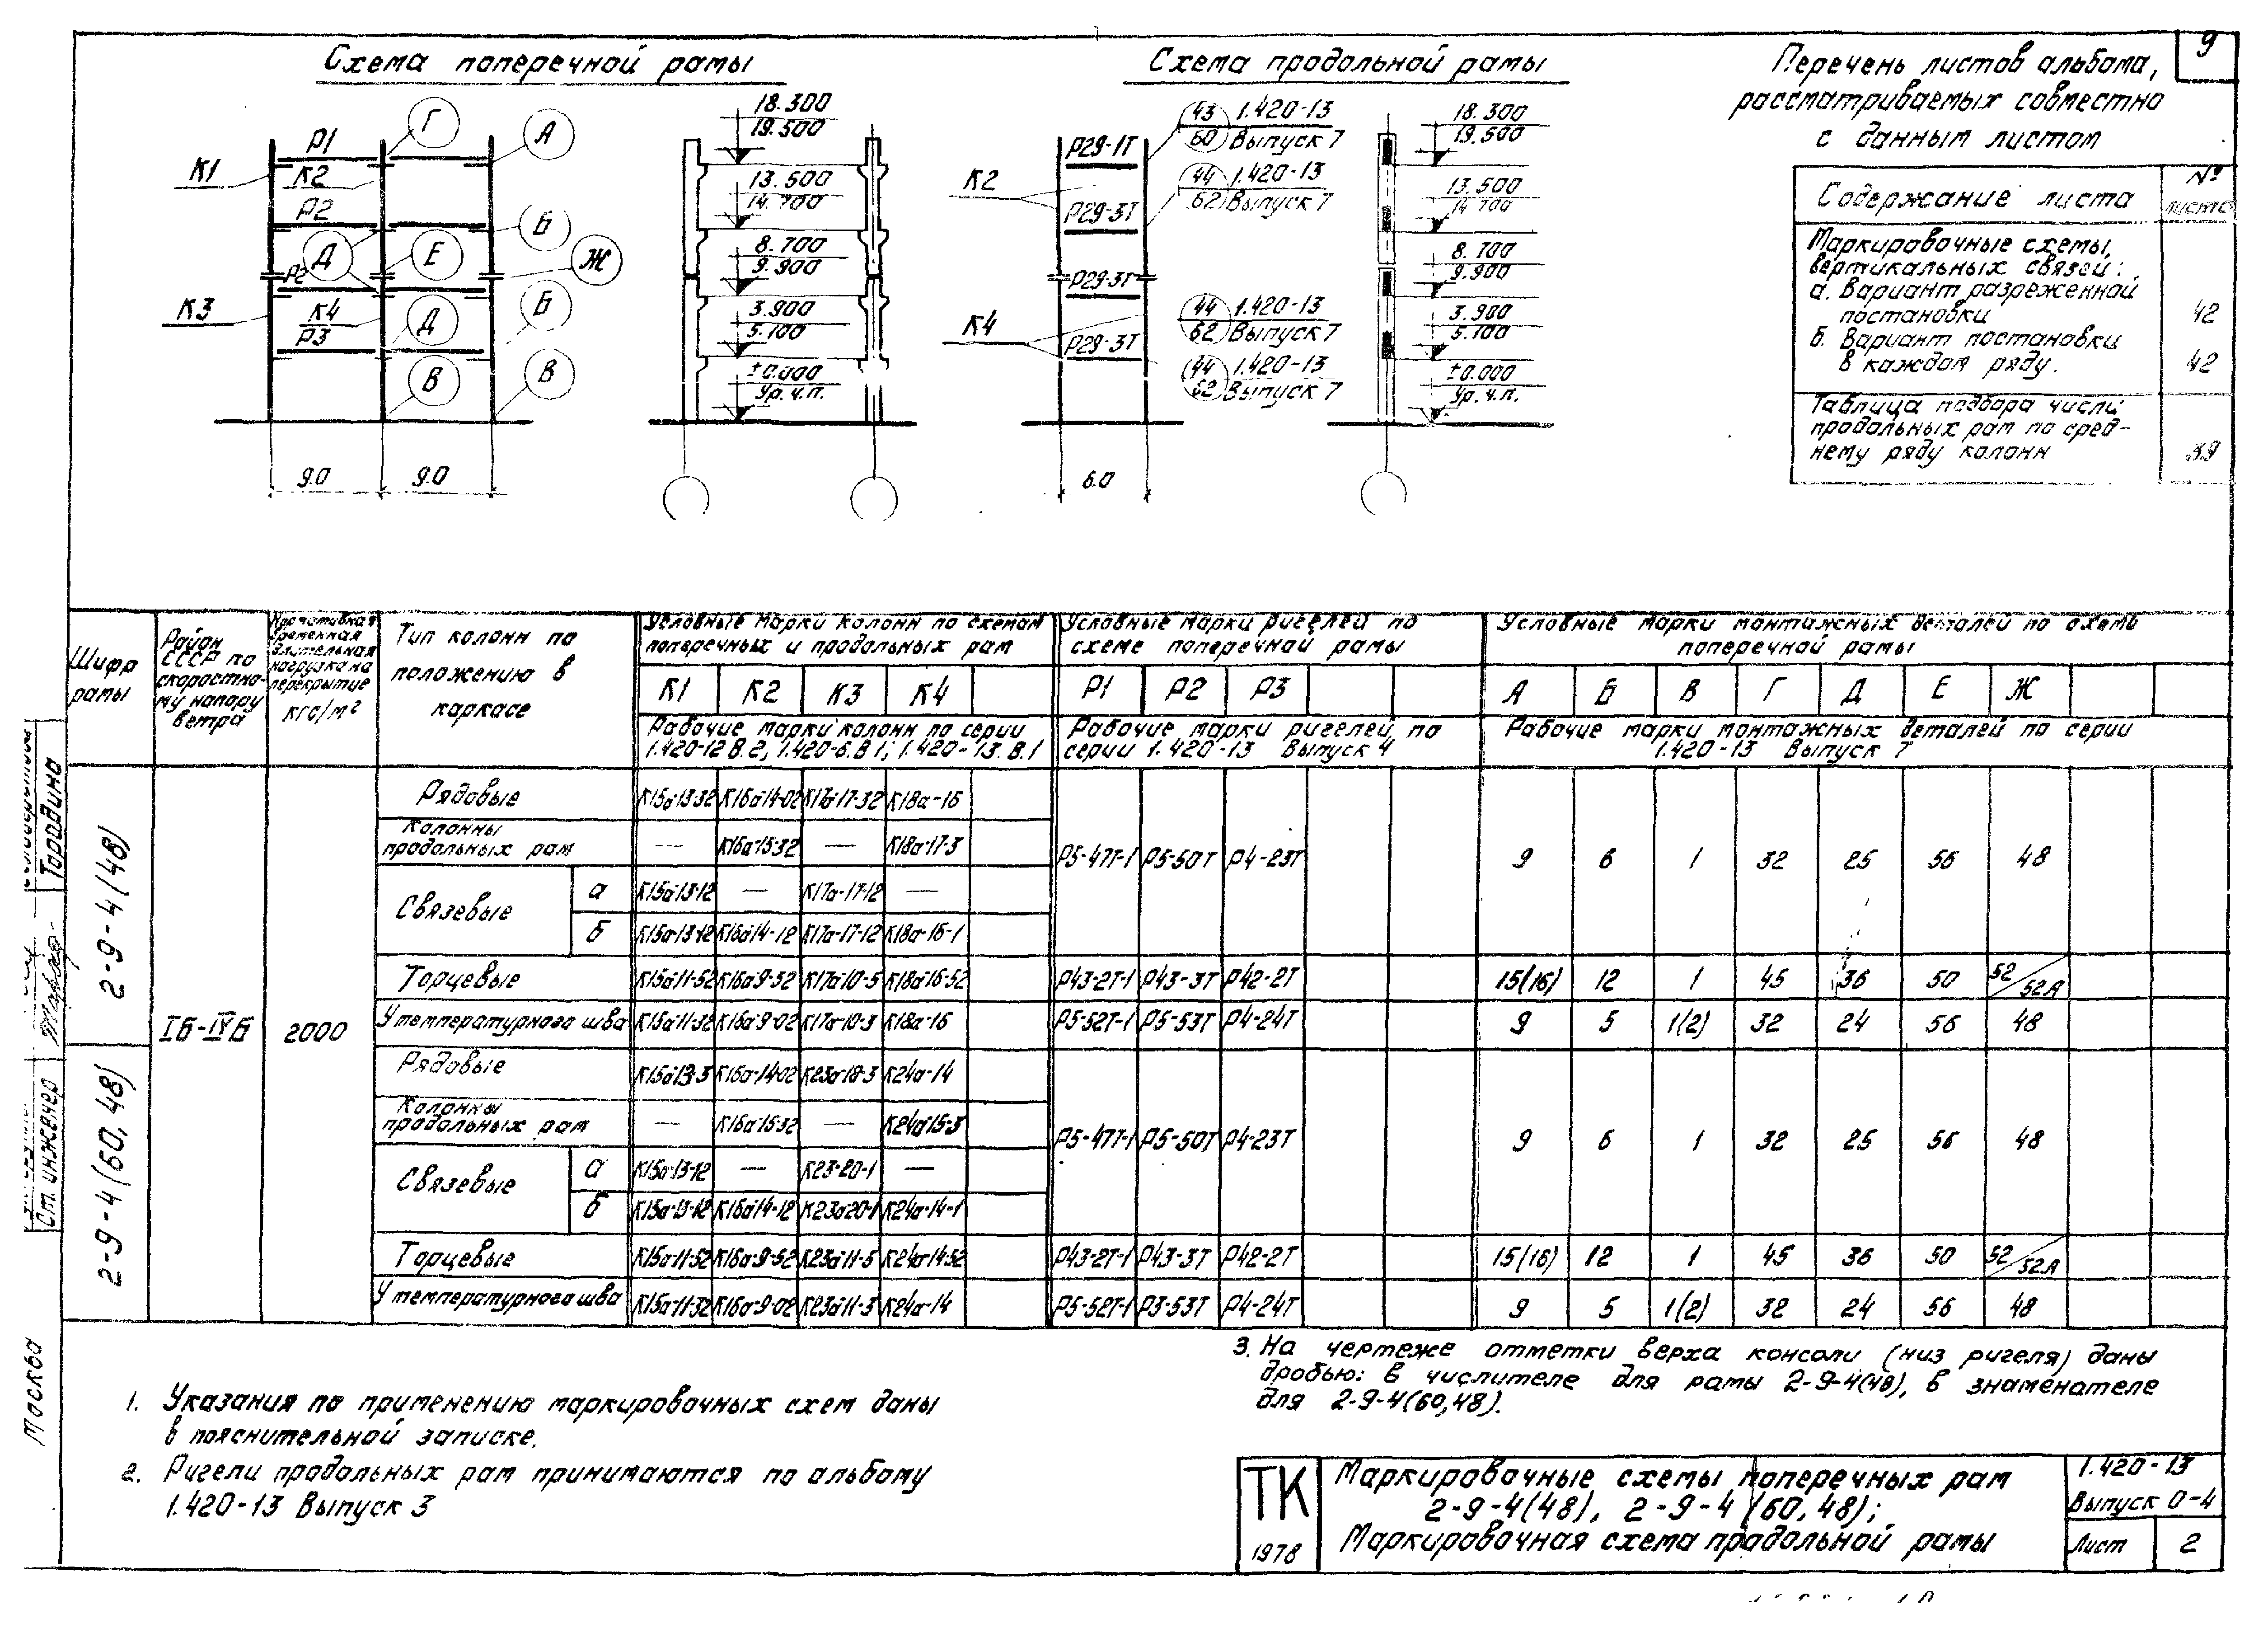 9
Схема поперечной рамы
Схема продольной рамы
Перечень листов альбома,
рассматриваемых совместно
с данным листом
Содержание листа
№ листа
Маркировочные схемы,
вертикальных связей:
а. Вариант разреженной
постановки 42
б. Вариант постановки
в каждом ряду. 42
Таблица подбора числа
продольных рам по сред-
нему ряду колонн 39
К1 Р1 К2 Р2 Р2 К3 К4 Р3
Г А Б Д Е Ж Д Б В В
9.0 9.0
18.300
19.500
13.500
14.700
8.700
9.900
3.900
5.100
±0.000
Ур.ч.п.
К2 К4
Р29-1Т
Р29-3Т
Р29-3Т
Р29-3Т
43 1.420-13
60 Выпуск 7
44 1.420-13
62 Выпуск 7
44 1.420-13
62 Выпуск 7
44 1.420-13
62 Выпуск 7
6.0
18.300
19.500
13.500
14.700
8.700
9.900
3.900
5.100
±0.000
Ур.ч.п.
Шифр
рамы
Район
СССР по
скоростно-
му напору
ветра
временная
длительная
нагрузка на
перекрытие
кгс/м²
Тип колонн по
положению в
каркасе
Условные марки колонн по схемам
поперечных и продольных рам
К1 К2 К3 К4
Рабочие марки колонн по серии
1.420-12 В.2, 1.420-6.В1; 1.420-13.В.1
Условные марки ригелей по
схеме поперечной рамы
Р1 Р2 Р3
Рабочие марки ригелей по
серии 1.420-13 Выпуск 4
Условные марки монтажных деталей по схеме
поперечной рамы
А Б В Г Д Е Ж
Рабочие марки монтажных деталей по серии
1.420-13 Выпуск 7
2-9-4(48)
2-9-4(60,48)
Iб-IVб
2000
Рядовые К15а13-32 К16а14-02 К17а17-32 К18а-16
Колонны
продольных рам — К16а-15-32 — К18а-17-3
Р5-47Т-1 Р5-50Т Р4-23Т 9 6 1 32 25 56 48
Связевые а К15а13-12 — К17а-17-12 —
б К15а-13-12 К16а14-12 К17а-17-12 К18а-16-1
Торцевые К15а11-52 К16а9-52 К17а10-5 К18а16-52 Р43-2Т-1 Р43-3Т Р42-2Т 15(16) 12 1 45 36 50 52/52А
У температурного шва К15а-11-32 К16а-9-02 К17а-10-3 К18а-16 Р5-52Т-1 Р5-53Т Р4-24Т 9 5 1(2) 32 24 56 48
Рядовые К15а13-3 К16а-14-02 К23а-18-3 К24а-14
Колонны
продольных рам — К16а15-32 — К24а15-3
Р5-47Т-1 Р5-50Т Р4-23Т 9 6 1 32 25 56 48
Связевые а К15а-13-12 — К23-20-1 —
б К15а-13-12 К16а14-12 К23а20-1 К24а-14-1
Торцевые К15а-11-52 К16а-9-52 К23а11-5 К24а-14-52 Р43-2Т-1 Р43-3Т Р42-2Т 15(16) 12 1 45 36 50 52/52А
У температурного шва К15а-11-32 К16а-9-02 К23а11-3 К24а-14 Р5-52Т-1 Р3-53Т Р4-24Т 9 5 1(2) 32 24 56 48
Тородина
Ст. инженер
Москва
1. Указания по применению маркировочных схем даны
в пояснительной записке.
2. Ригели продольных рам принимаются по альбому
1.420-13 Выпуск 3
3. На чертеже отметки верха консоли (низ ригеля) даны
дробью: в числителе для рамы 2-9-4(48), в знаменателе
для 2-9-4(60,48).
ТК
1978
Маркировочные схемы поперечных рам
2-9-4(48), 2-9-4(60,48);
Маркировочная схема продольной рамы
1.420-13
Выпуск 0-4
Лист 2